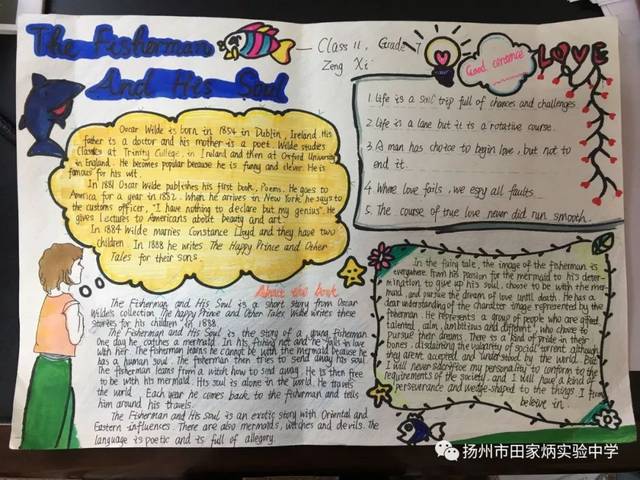 The Fisherman
And His Soul
Class 11, Grade 7
Zeng Xi
Good sentence
LOVE
1. Life is a soul trip full of chances and challenges.
2. Life is a lane but it is a rotative course.
3. A man has choice to begin love, but not to
end it.
4. Where love fails, we espy all faults.
5. The course of true love never did run smooth.
Oscar Wilde is born in 1854 in Dublin, Ireland. His
father is a doctor and his mother is a poet. Wilde studies
Classics at Trinity College, in Ireland and then at Oxford University
in England. He becomes popular because he is funny and clever. He is
famous for his wit.
In 1881 Oscar Wilde publishes his first book, Poems. He goes to
America for a year in 1882. When he arrives in New York he says to
the customs officer, "I have nothing to declare but my genius". He
gives lectures to Americans about beauty and art.
In 1884 Wilde marries Constance Lloyd and they have two
children. In 1888 he writes The Happy Prince and Other
Tales for their sons.
About the book
The Fisherman and His Soul is a short story from Oscar
Wilde's collection The Happy Prince and Other Tales. Wilde writes these
stories for his children in 1888.
The Fisherman and His Soul is the story of a young fisherman.
One day he catches a mermaid in his fishing net and he falls in love
with her. The fisherman learns he cannot be with the mermaid because he
has a human soul. The fisherman then tries to send away his soul.
The fisherman learns from a witch how to send away. He is then free
to be with his mermaid. His soul is alone in the world. He travels
the world. Each year he comes back to the fisherman and tells
him around his travels.
The Fisherman and His soul is an exotic story with Oriental and
Eastern influences. There are also mermaids, witches and devils. The
language is poetic and is full of allegory.
In the fairy tale, the image of the fisherman is
everywhere. From his passion for the mermaid to his deter-
mination to give up his soul, choose to be with the mer-
maid, and pursue the dream of love until death. He has a
clear understanding of the character image represented by the
fisherman. He represents a group of people who are gifted
talented, calm, ambitious and different, who choose to
pursuet their dreams. There is a kind of pride in their
bones, disdaining the vulgarity of social current, although
they arent accepted and understood by the world. But
I will never sacrifise my personality to conform to the
requirements of the society, and I will have a kind of
perseverance and wedge-shaped to the things I from
believe in.
扬州市田家炳实验中学